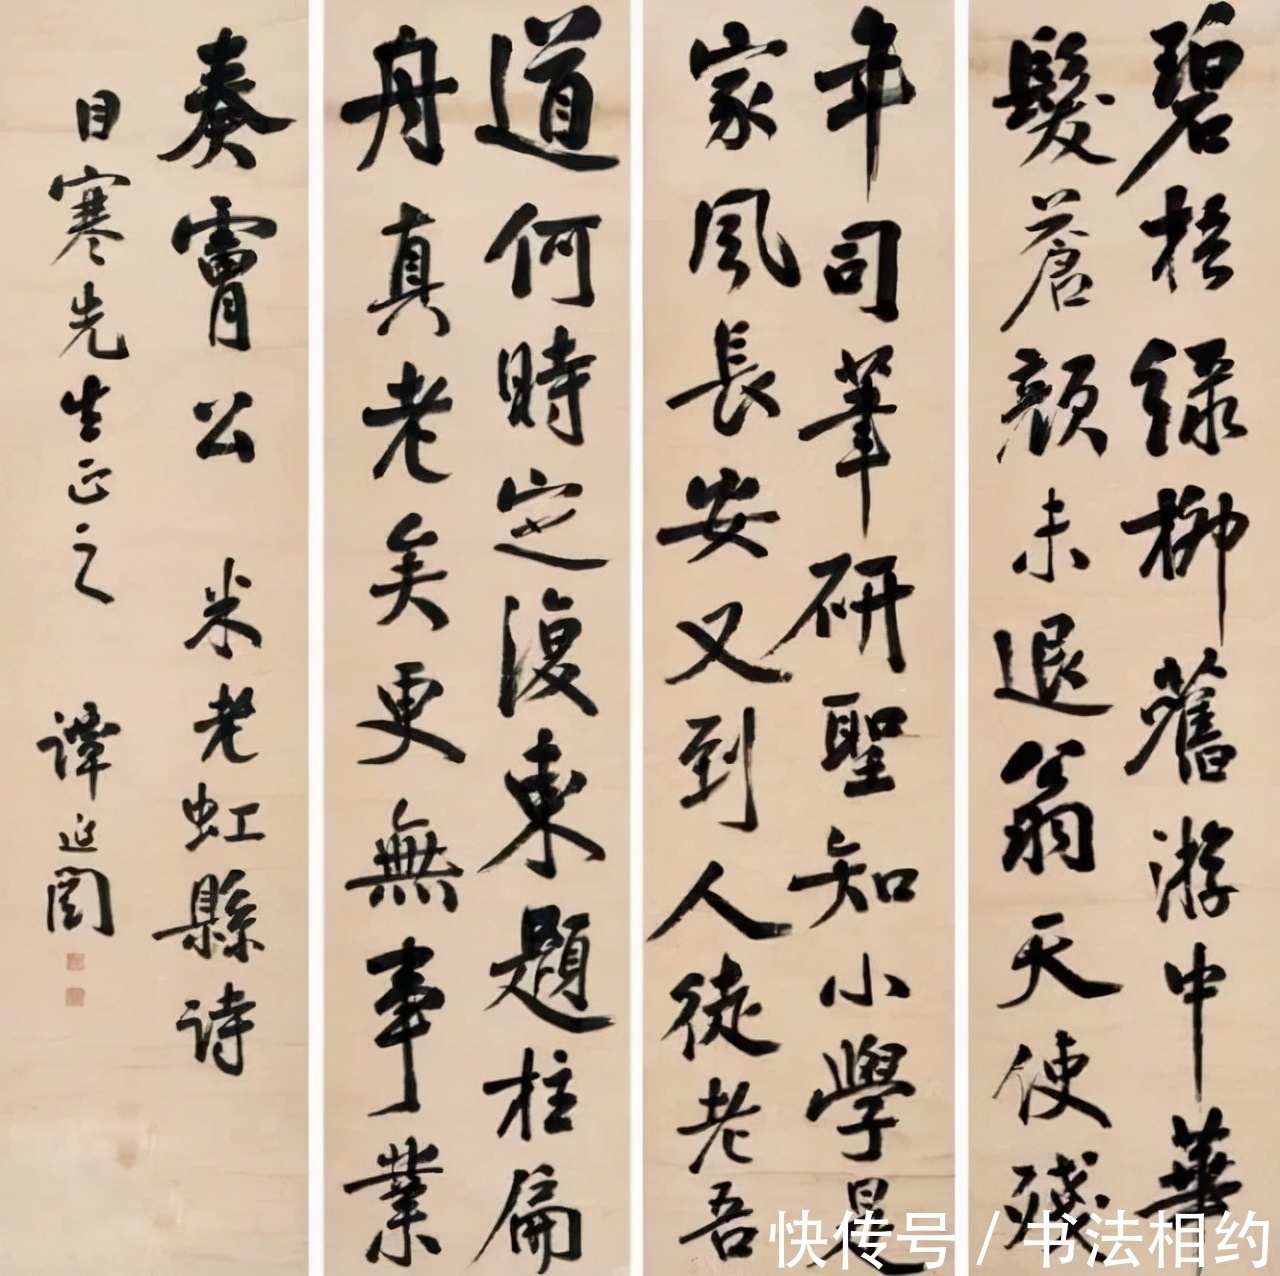 碧梧綠柳舊游中華
髮蒼顏未退翁天使殘
年司筆研聖知小學是
家風長安又到人徒老吾
道何時定復東題柱扁
舟真老矣更無事業
奏膚公 米老虹縣詩
目寒先生正之 譚延闓
快传号 / 书法相约